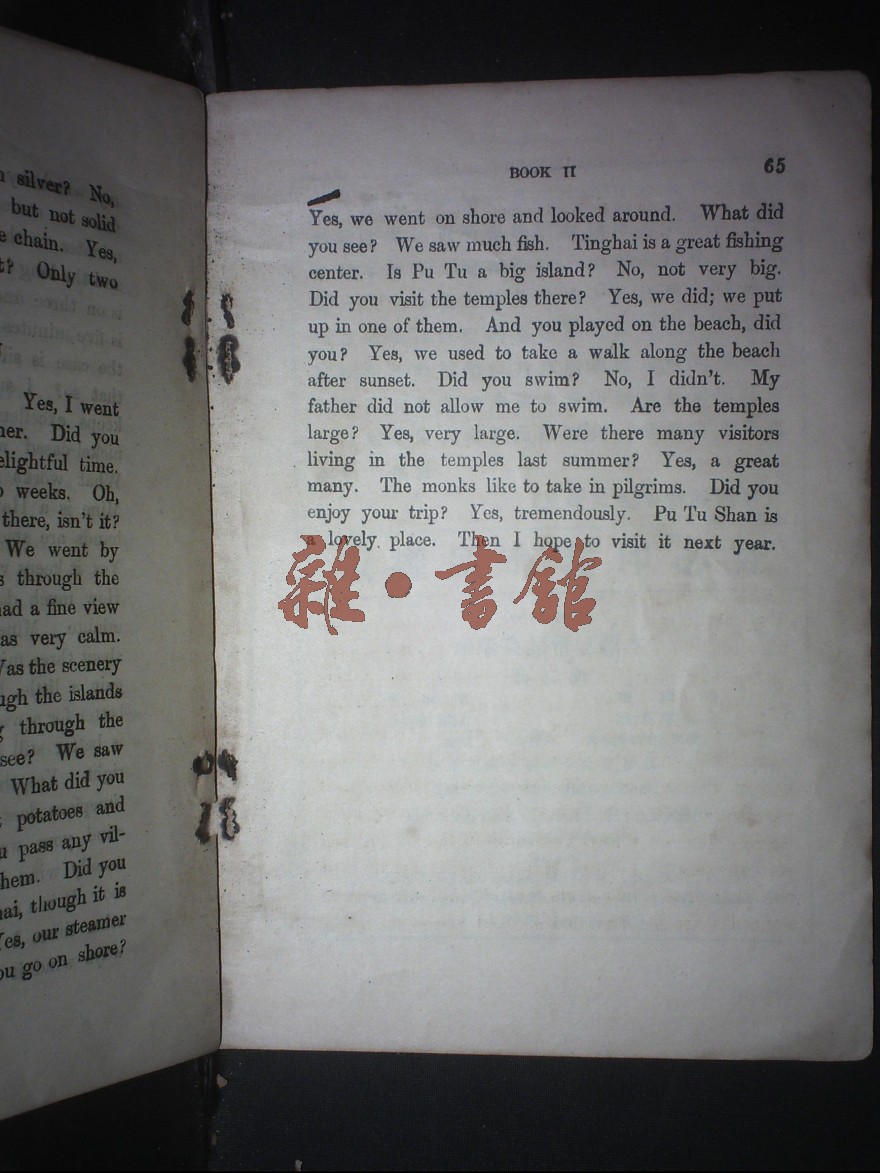 silver? No,
but not solid
chain. Yes,
Only two
Yes, I went
Did you
time.
weeks. Oh,
there, isn't it?
We went by
through the
a fine view
was very calm.
Was the scenery
the islands
through the
see? We saw
What did you
potatoes and
pass any vil-
them. Did you
though it is
Yes, our steamer
you go on shore?
BOOK II
65
Yes, we went on shore and looked around. What did
you see? We saw much fish. Tinghai is a great fishing
center. Is Pu Tu a big island? No, not very big.
Did you visit the temples there? Yes, we did; we put
up in one of them. And you played on the beach, did
you? Yes, we used to take a walk along the beach
after sunset. Did you swim? No, I didn't. My
father did not allow me to swim. Are the temples
large? Yes, very large. Were there many visitors
living in the temples last summer? Yes, a great
many. The monks like to take in pilgrims. Did you
enjoy your trip? Yes, tremendously. Pu Tu Shan is
a lovely place. Then I hope to visit it next year.
雜•書館